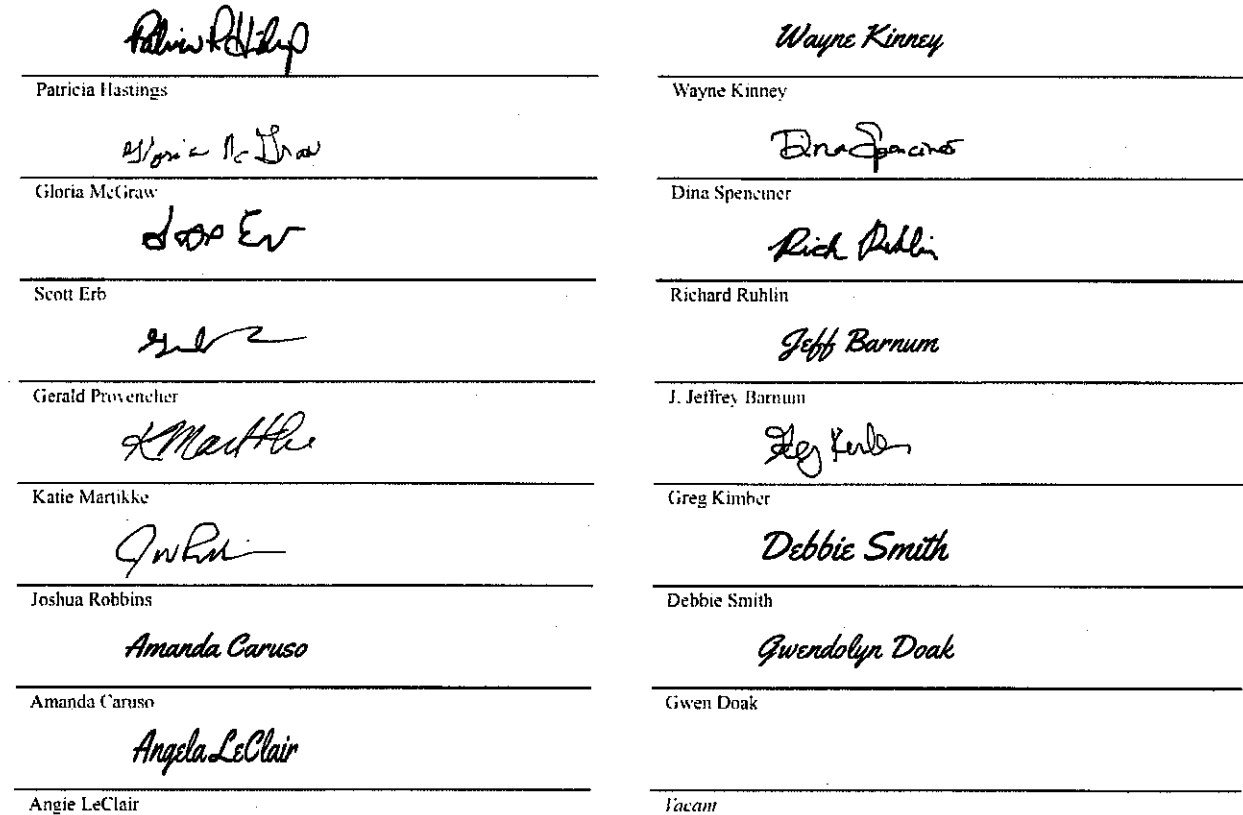 Patricia Hastings
Gloria McGraw
Gloria McGraw
Scott Erb
Gerald Provencher
K Martikke
Katie Martikke
Joshua Robbins
Amanda Caruso
Amanda Caruso
Angela LeClair
Angie LeClair
Wayne Kinney
Wayne Kinney
Dina Spenciner
Dina Spenciner
Rich Ruhlin
Richard Ruhlin
Jeff Barnum
J. Jeffrey Barnum
Greg Kimber
Debbie Smith
Debbie Smith
Gwendolyn Doak
Gwen Doak
Vacant